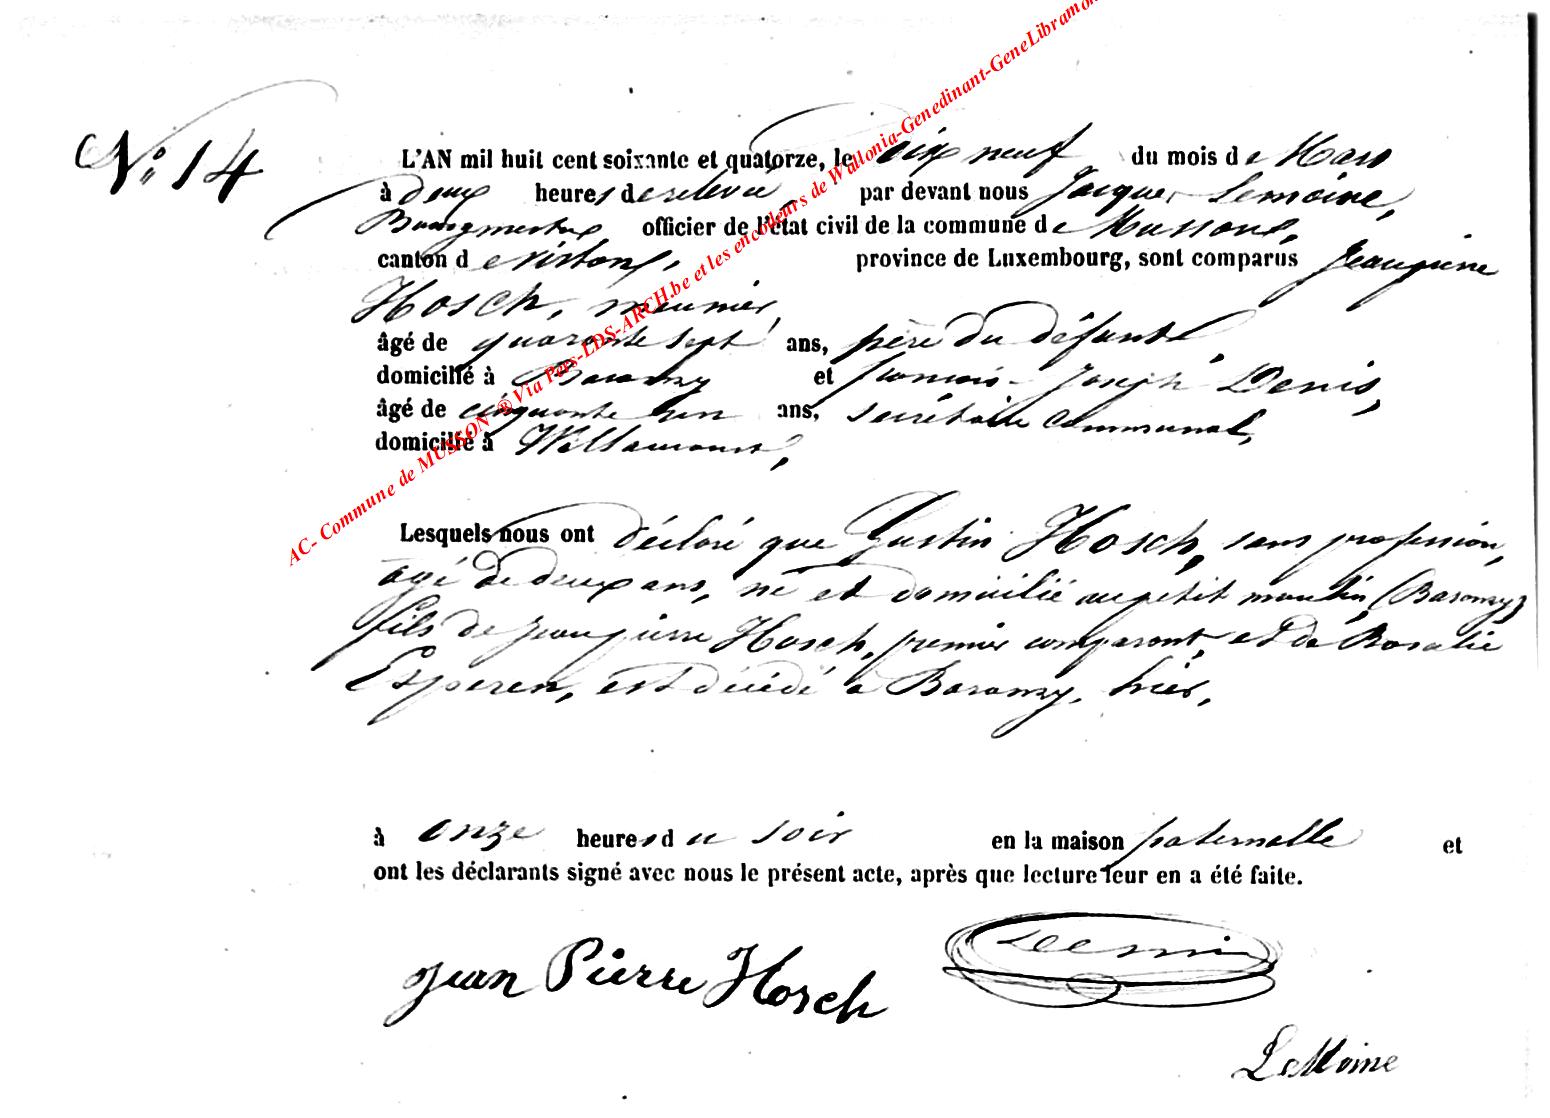 N° 14
L'AN mil huit cent soixante et quatorze, le dix neuf du mois de Mars
à deux heures de relevée, par devant nous Jacques Lemoine,
Bourgmestre officier de l'état civil de la commune de Musson,
canton de Virton, province de Luxembourg, sont comparus Jeanpierre
Hosch, meunier,
âgé de quarante sept ans, père du défunt,
domicilié à Baranzy et francois-Joseph Denis,
âgé de cinquante un ans, secrétaire communal,
domicilié à Willancourt,
Lesquels nous ont déclaré que Justin Hosch, sans profession,
agé de deux ans, né et domicilié au petit moulin, (Baranzy)
fils de Jeanpierre Hosch, premier comparant, et de Rosalie
Esperen, est décédé à Baranzy, hier,
à onze heures du soir en la maison paternelle et
ont les déclarants signé avec nous le présent acte, après que lecture leur en a été faite.
Jean Pierre Hosch
Denis
LeMoine
AC- Commune de MUSSON ® Via Pers-LDS-ARCH.be et les encodeurs de Wallonia-Genedinant-GeneLibramon